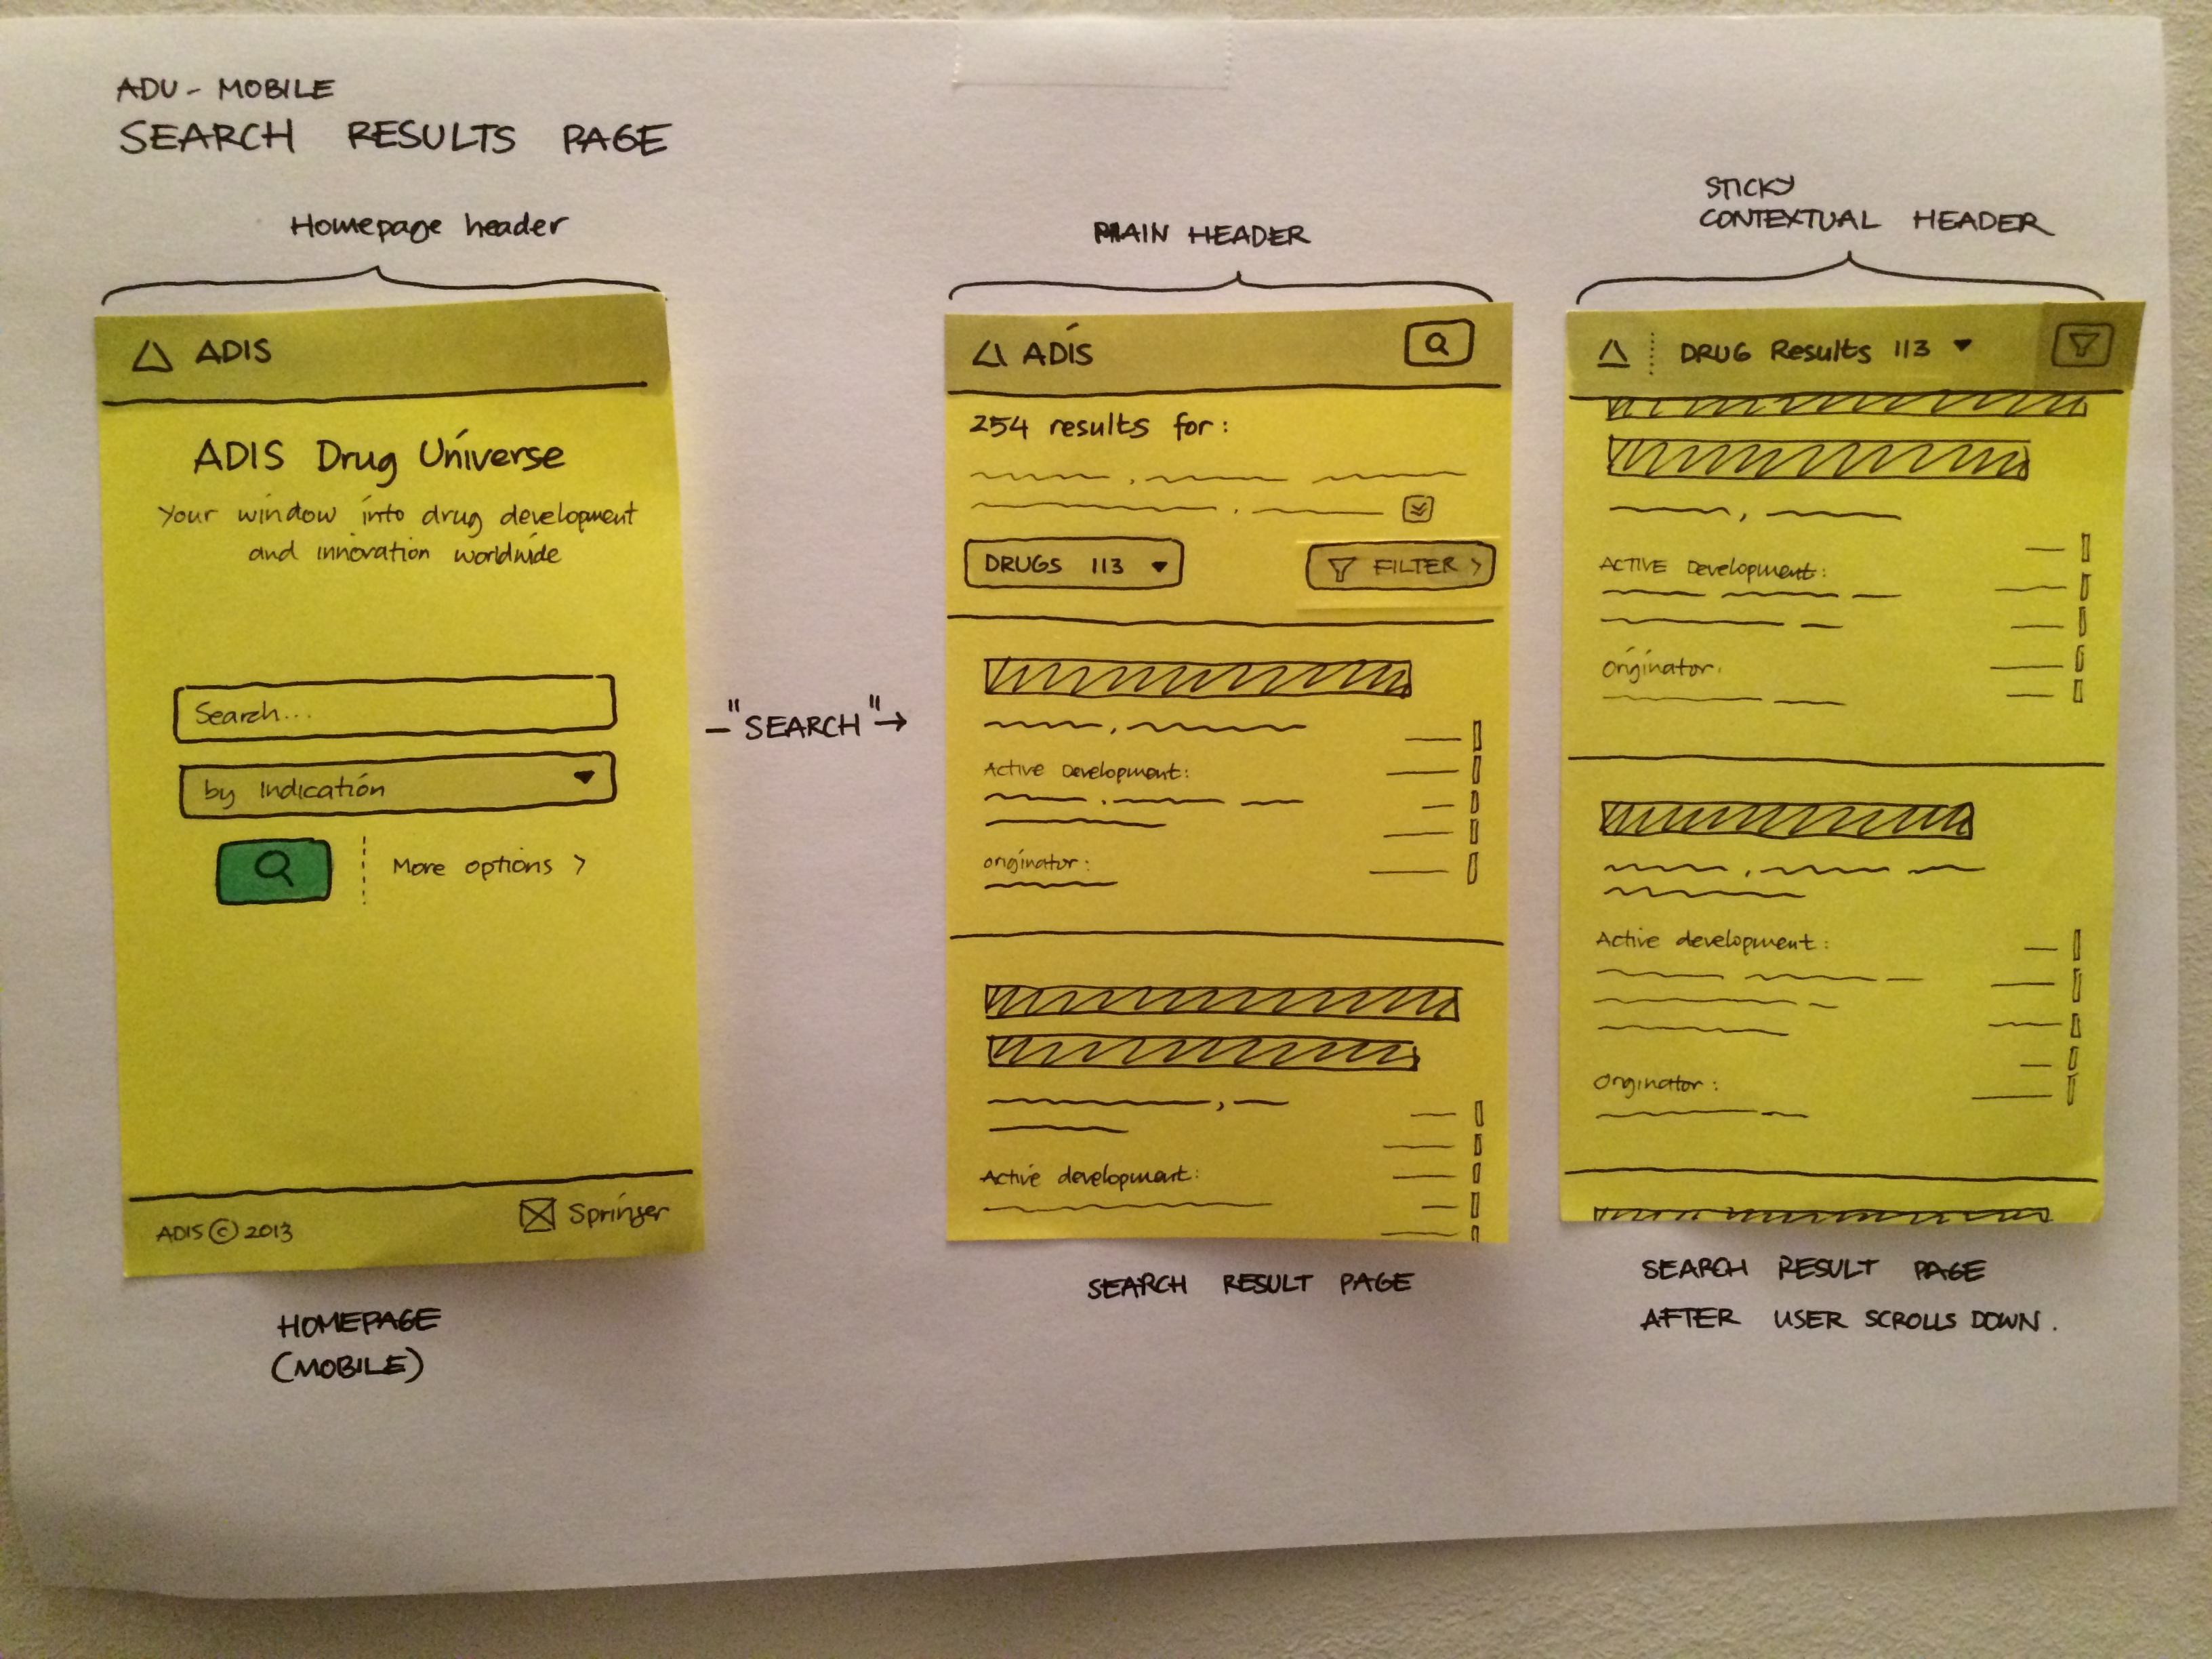 ADU - MOBILE
SEARCH RESULTS PAGE
Homepage header
ADIS
ADIS Drug Universe
Your window into drug development
and innovation worldwide
Search...
by Indication
More options >
ADIS © 2013
Springer
HOMEPAGE
(MOBILE)
— "SEARCH" →
MAIN HEADER
ADIS
254 results for:
DRUGS 113
FILTER >
Active Development:
originator:
Active development:
SEARCH RESULT PAGE
STICKY
CONTEXTUAL HEADER
DRUG Results 113
ACTIVE Development:
Originator:
Active development:
Originator:
SEARCH RESULT PAGE
AFTER USER SCROLLS DOWN.